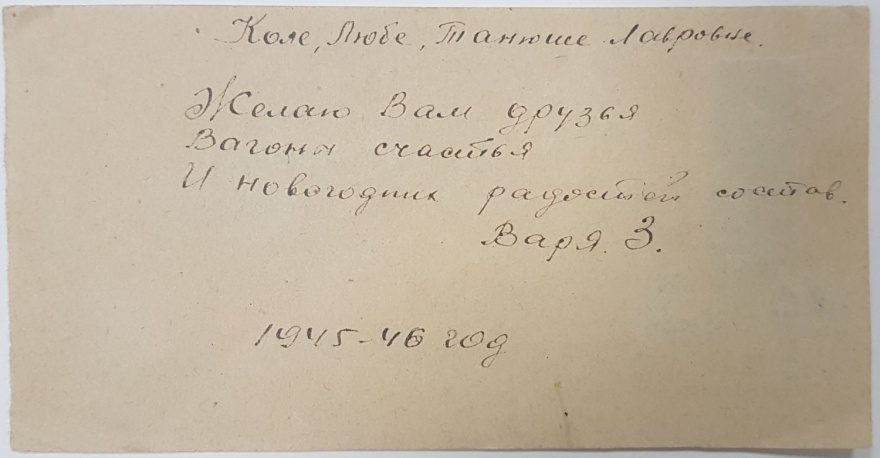 Коле, Любе, Танюше Лавровые.
Желаю Вам друзья
Вагоны счастья
И новогодних радостей состав.
Варя З.
1945-46 год